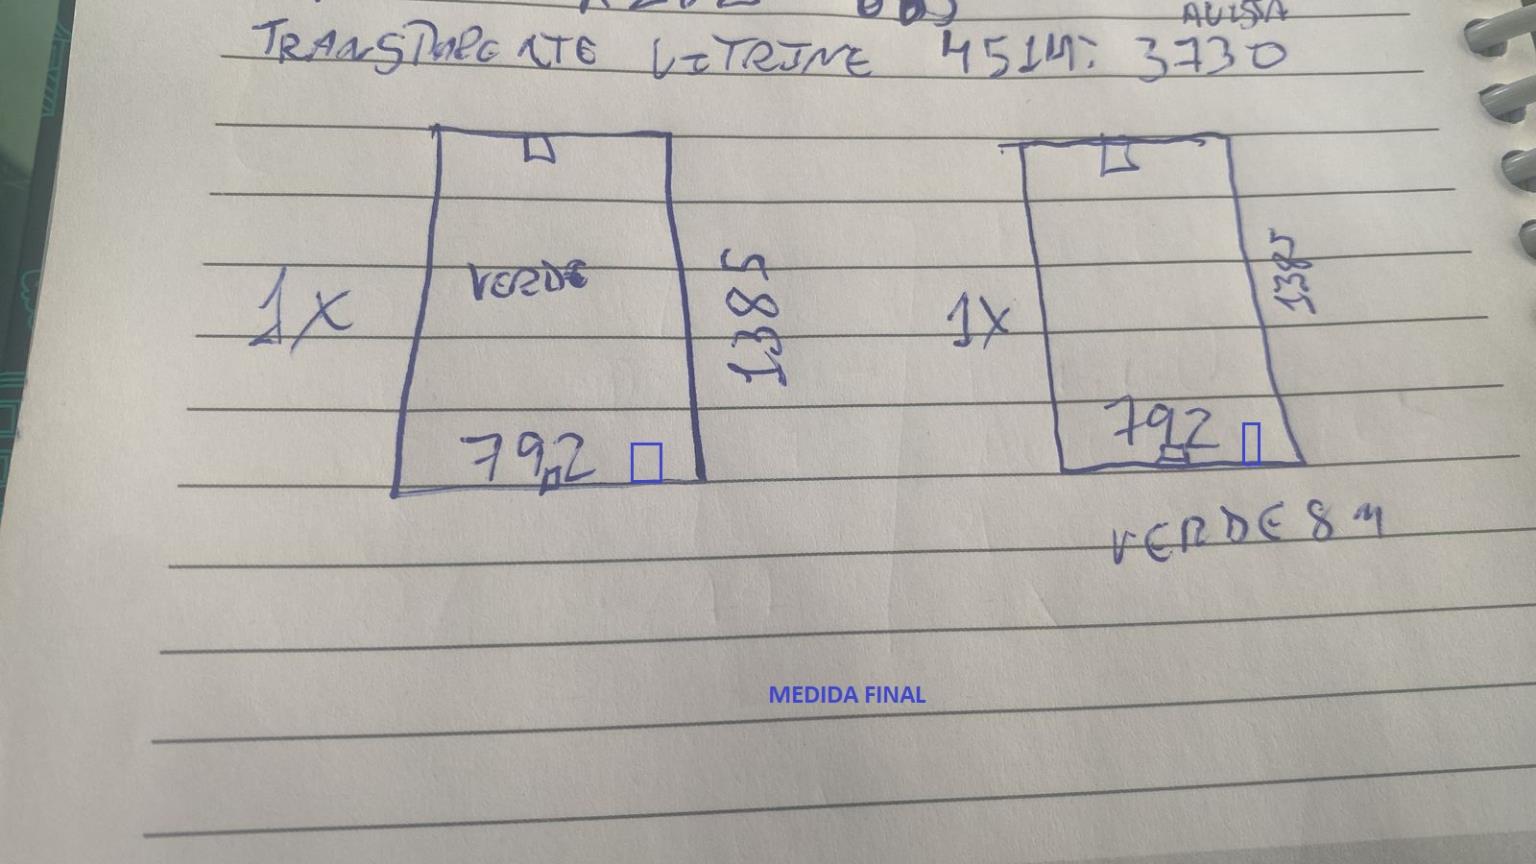 AVISTA
TRANSPARENTE VITRINE 451M: 3730
1X VERDE 1385
792
1X 1385
792
VERDE 8M
MEDIDA FINAL